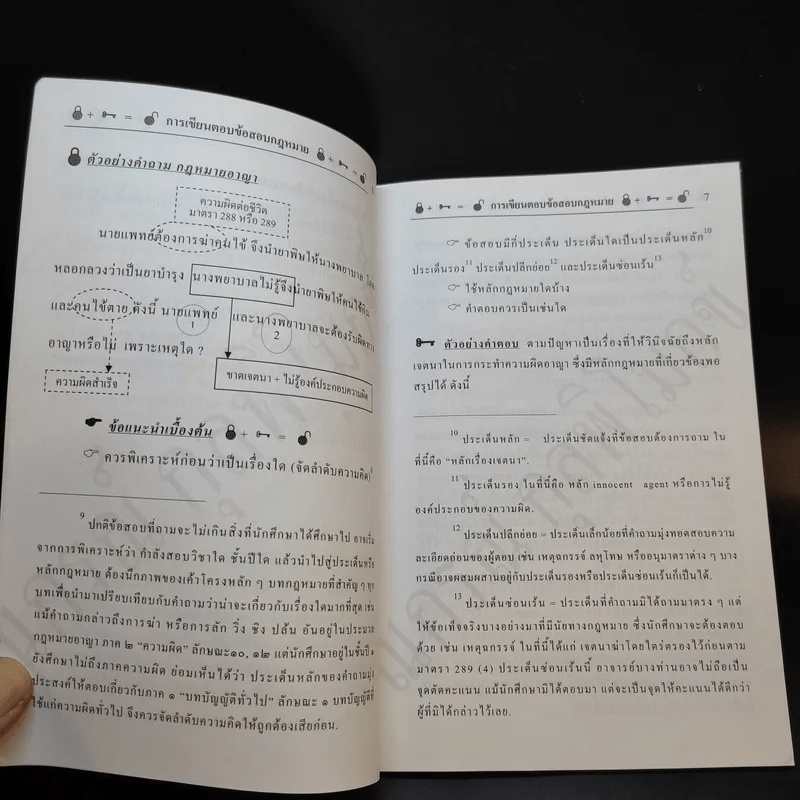 + = การเขียนตอบข้อสอบกฎหมาย + =
ตัวอย่างคำถาม กฎหมายอาญา
ความผิดต่อชีวิต
มาตรา 288 หรือ 289
นายแพทย์ต้องการฆ่าคนไข้ จึงนำยาพิษให้นางพยาบาล โดย
หลอกลวงว่าเป็นยาบำรุง นางพยาบาลไม่รู้จึงนำยาพิษให้คนไข้กิน
และคนไข้ตาย ดังนี้ นายแพทย์ และนางพยาบาลจะต้องรับผิดทาง
1 2
อาญาหรือไม่ เพราะเหตุใด ?
ความผิดสำเร็จ
ขาดเจตนา + ไม่รู้องค์ประกอบความผิด
ข้อแนะนำเบื้องต้น + =
ควรพิเคราะห์ก่อนว่าเป็นเรื่องใด (จัดลำดับความคิด)
9 ปกติข้อสอบที่ถามจะไม่เกินสิ่งที่นักศึกษาได้ศึกษาไป อาจเริ่ม
จากการพิเคราะห์ว่า กำลังสอบวิชาใด ชั้นปีใด แล้วนำไปสู่ประเด็นหรือ
หลักกฎหมาย ต้องนึกภาพของเค้าโครงหลัก ๆ บทกฎหมายที่สำคัญ ๆ ทุก
บทเพื่อนำมาเปรียบเทียบกับคำถามว่าน่าจะเกี่ยวกับเรื่องใดมากที่สุด เช่น
แม้คำถามกล่าวถึงการฆ่า หรือการลัก วิ่ง ชิง ปล้น อันอยู่ในประมวล
กฎหมายอาญา ภาค ๒ “ความผิด” ลักษณะ๑๐, ๑๒ แต่นักศึกษาอยู่ในชั้นปี
ยังศึกษาไม่ถึงภาคความผิด ย่อมเห็นได้ว่า ประเด็นหลักของคำถามมุ่ง
ประสงค์ให้ตอบเกี่ยวกับภาค ๑ “บทบัญญัติทั่วไป” ลักษณะ ๑ บทบัญญัติที่
ใช้แก่ความผิดทั่วไป จึงควรจัดลำดับความคิดให้ถูกต้องเสียก่อน.
+ = การเขียนตอบข้อสอบกฎหมาย + = 7
ข้อสอบมีกี่ประเด็น ประเด็นใดเป็นประเด็นหลัก10
ประเด็นรอง11 ประเด็นปลีกย่อย12 และประเด็นซ่อนเร้น13
ใช้หลักกฎหมายใดบ้าง
คำตอบควรเป็นเช่นใด
ตัวอย่างคำตอบ ตามปัญหาเป็นเรื่องที่ให้วินิจฉัยถึงหลัก
เจตนาในการกระทำความผิดอาญา ซึ่งมีหลักกฎหมายที่เกี่ยวข้องพอ
สรุปได้ ดังนี้
10 ประเด็นหลัก = ประเด็นชัดแจ้งที่ข้อสอบต้องการถาม ใน
ที่นี้คือ “หลักเรื่องเจตนา”.
11 ประเด็นรอง ในที่นี้คือ หลัก innocent agent หรือการไม่รู้
องค์ประกอบของความผิด.
12 ประเด็นปลีกย่อย = ประเด็นเล็กน้อยที่คำถามมุ่งทดสอบความ
ละเอียดอ่อนของผู้ตอบ เช่น เหตุฉกรรจ์ ลหุโทษ หรืออนุมาตราต่าง ๆ บาง
กรณีอาจผสมผสานอยู่กับประเด็นรองหรือประเด็นซ่อนเร้นก็เป็นได้.
13 ประเด็นซ่อนเร้น = ประเด็นที่คำถามมิได้ถามมาตรง ๆ แต่
ให้ข้อเท็จจริงบางอย่างมาที่มีนัยทางกฎหมาย ซึ่งนักศึกษาจะต้องตอบ
ด้วย เช่น เหตุฉกรรจ์ ในที่นี้ได้แก่ เจตนาฆ่าโดยไตร่ตรองไว้ก่อนตาม
มาตรา 289 (4) ประเด็นซ่อนเร้นนี้ อาจารย์บางท่านอาจไม่ถือเป็น
จุดตัดคะแนน แม้นักศึกษามิได้ตอบมา แต่จะเป็นจุดให้คะแนนได้ดีกว่า
ผู้ที่มิได้กล่าวไว้เลย.